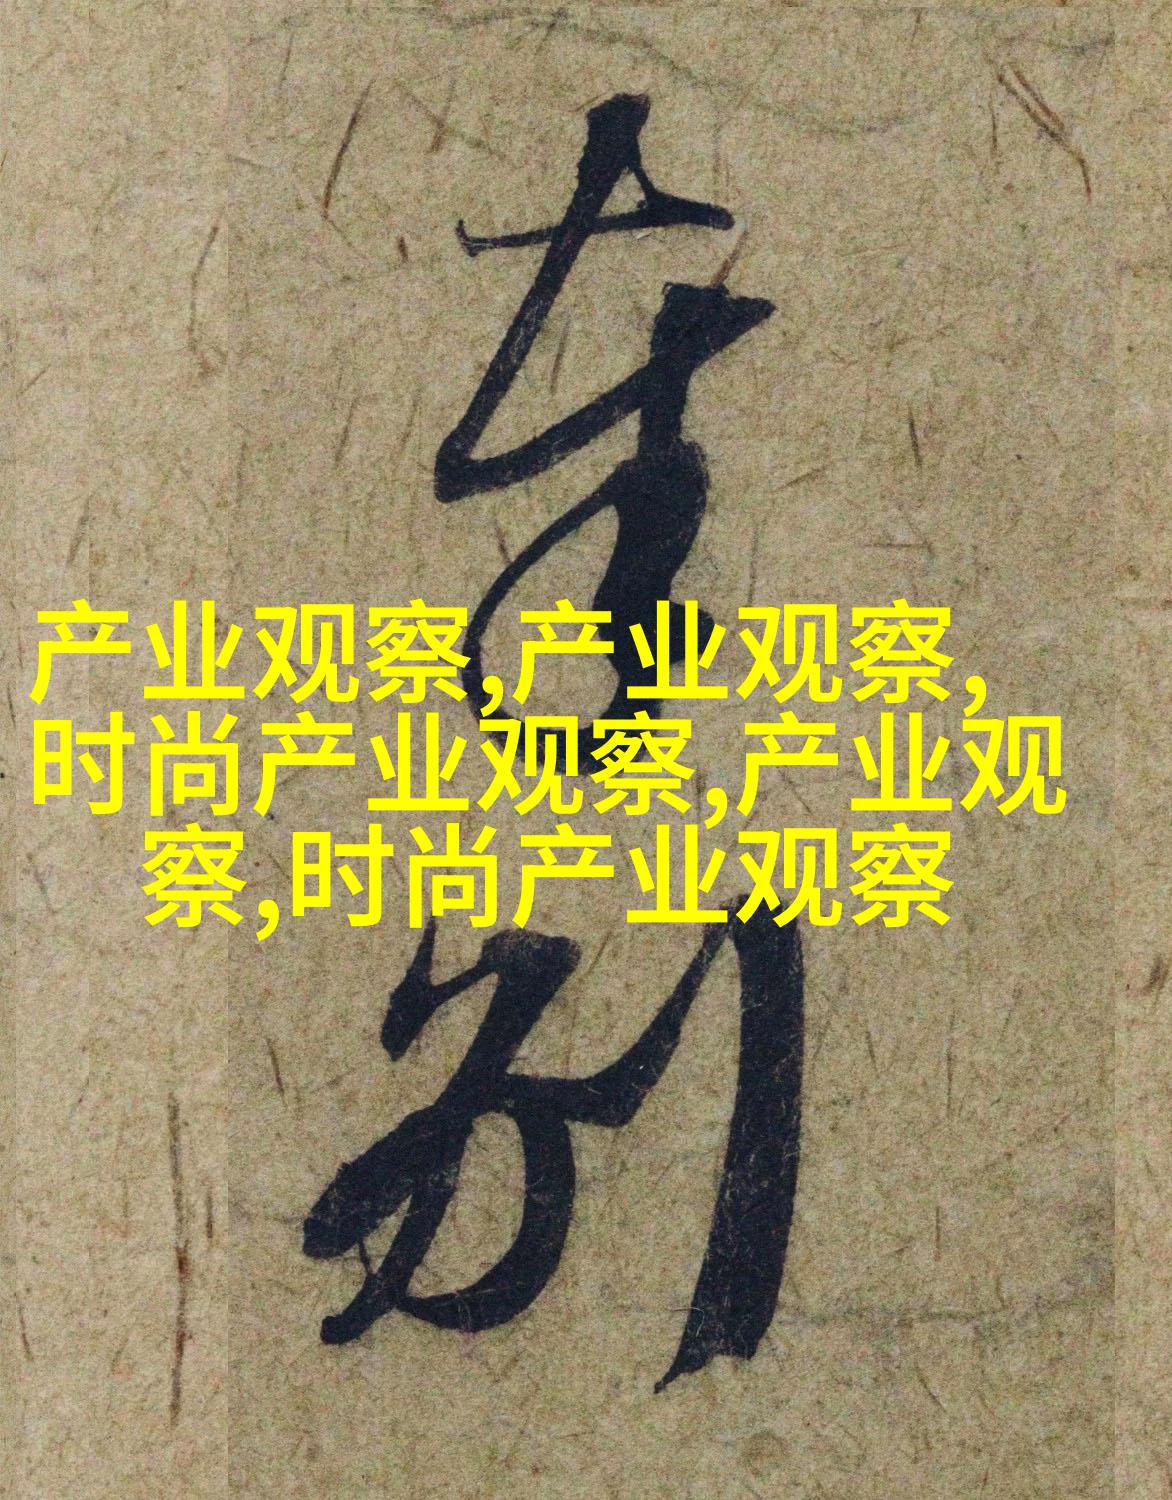 产业观察,产业观察,
时尚产业观察,产业观
察,时尚产业观察